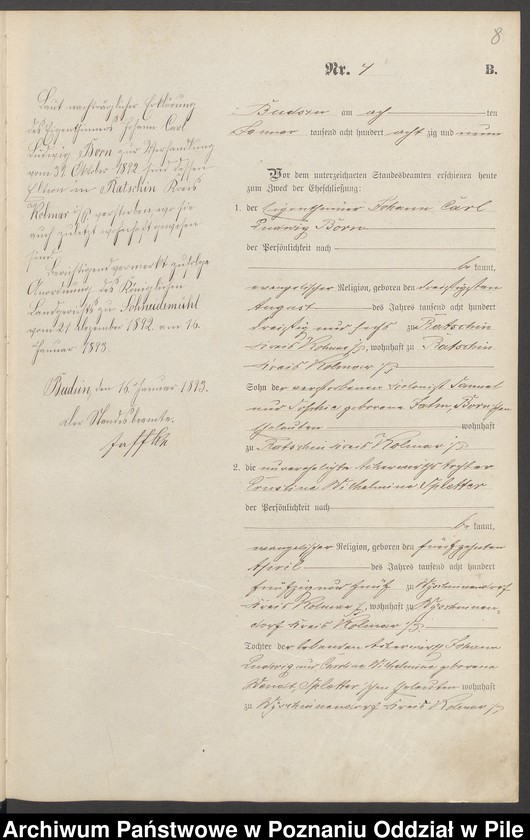 8
Nr. 4
B.
Laut nachträglicher Erklärung
des Eigenthümers Johann Carl
Ludwig Born zur Verhandlung
vom 31. Oktober 1892 sind dessen
Eltern in Ratschin Kreis
Kolmar i/P. verstorben, wo sie
auch zuletzt wohnhaft gewesen
sind.
Berichtigend vermerkt zufolge
Anordnung des Königlichen
Landgerichts zu Schneidemühl
vom 21 Dezember 1892 am 16.
Januar 1893.
Budsin, den 16. Januar 1893.
Der Standesbeamte.
Budsin am acht ten
Januar tausend acht hundert acht zig und neun
Vor dem unterzeichneten Standesbeamten erschienen heute
zum Zweck der Eheschließung:
1. der Eigenthümer Johann Carl
Ludwig Born
der Persönlichkeit nach
be kannt,
evangelischer Religion, geboren den dreißigsten
August des Jahres tausend acht hundert
dreißig und sechs zu Ratschin
Kreis Kolmar i/P., wohnhaft zu Ratschin
Kreis Kolmar i/P.
Sohn der verstorbenen Kolonist Samuel
und Sophie geborene Born'schen
Eheleuten wohnhaft
zu Ratschin Kreis Kolmar i/P
2. die unverehelichte Ackerwirthstochter
Ernstine Wilhelmine Spletter
der Persönlichkeit nach
be kannt,
evangelischer Religion, geboren den fünfzehnten
April des Jahres tausend acht hundert
fünfzig und fünf zu
Kreis Kolmar i/P., wohnhaft zu
dorf Kreis Kolmar i/P.
Tochter der lebenden Ackerwirth Johann
Ludwig und Caroline Wilhelmine geborene
Wendt, Spletter'schen Eheleuten wohnhaft
zu Kreis Kolmar i/P
Archiwum Państwowe w Poznaniu Oddział w Pile